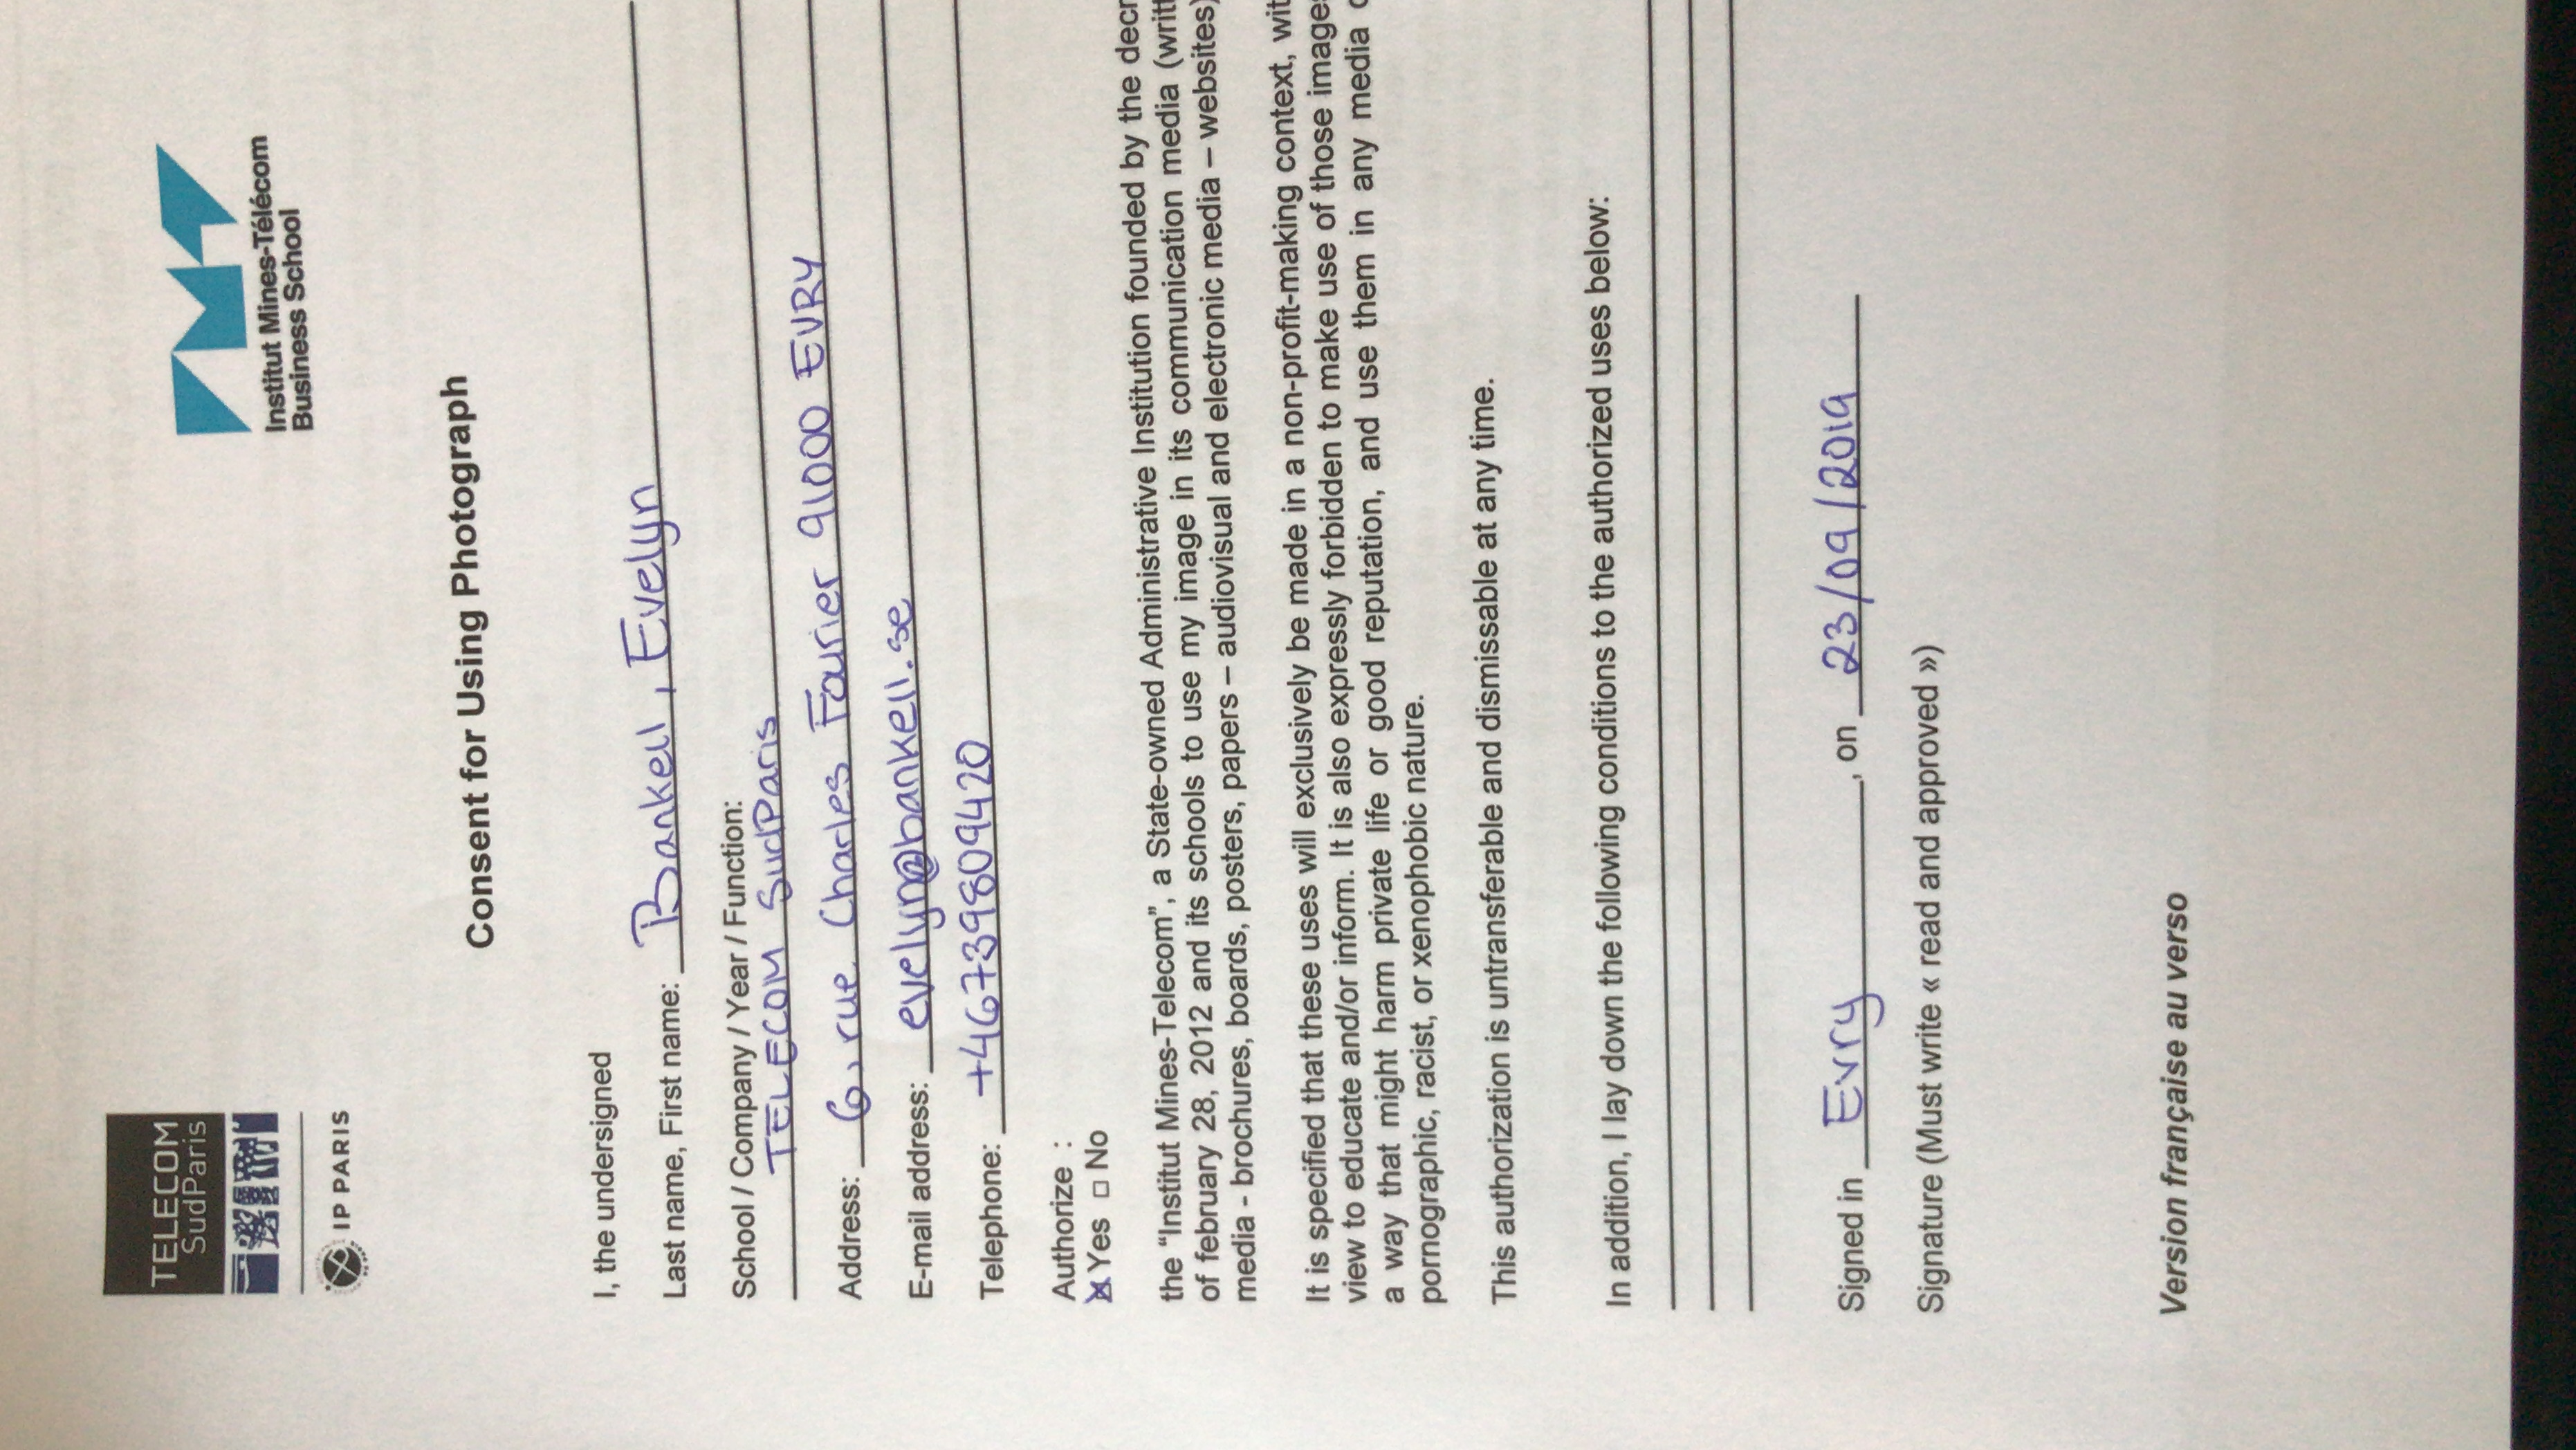 TELECOM
SudParis
IP PARIS
Institut Mines-Télécom
Business School
Consent for Using Photograph
I, the undersigned
Last name, First name: Bankell, Evelyn
School / Company / Year / Function:
TELECOM SudParis
Address: 6, rue Charles Fourier 91000 EVRY
E-mail address: evelyn@bankell.se
Telephone: +46739809420
Authorize :
☒ Yes □ No
the “Institut Mines-Telecom”, a State-owned Administrative Institution founded by the decr
of february 28, 2012 and its schools to use my image in its communication media (writt
media - brochures, boards, posters, papers – audiovisual and electronic media – websites)
It is specified that these uses will exclusively be made in a non-profit-making context, wit
view to educate and/or inform. It is also expressly forbidden to make use of those image
a way that might harm private life or good reputation, and use them in any media
pornographic, racist, or xenophobic nature.
This authorization is untransferable and dismissable at any time.
In addition, I lay down the following conditions to the authorized uses below:
Signed in Evry , on 23/09/2019
Signature (Must write « read and approved »)
Version française au verso